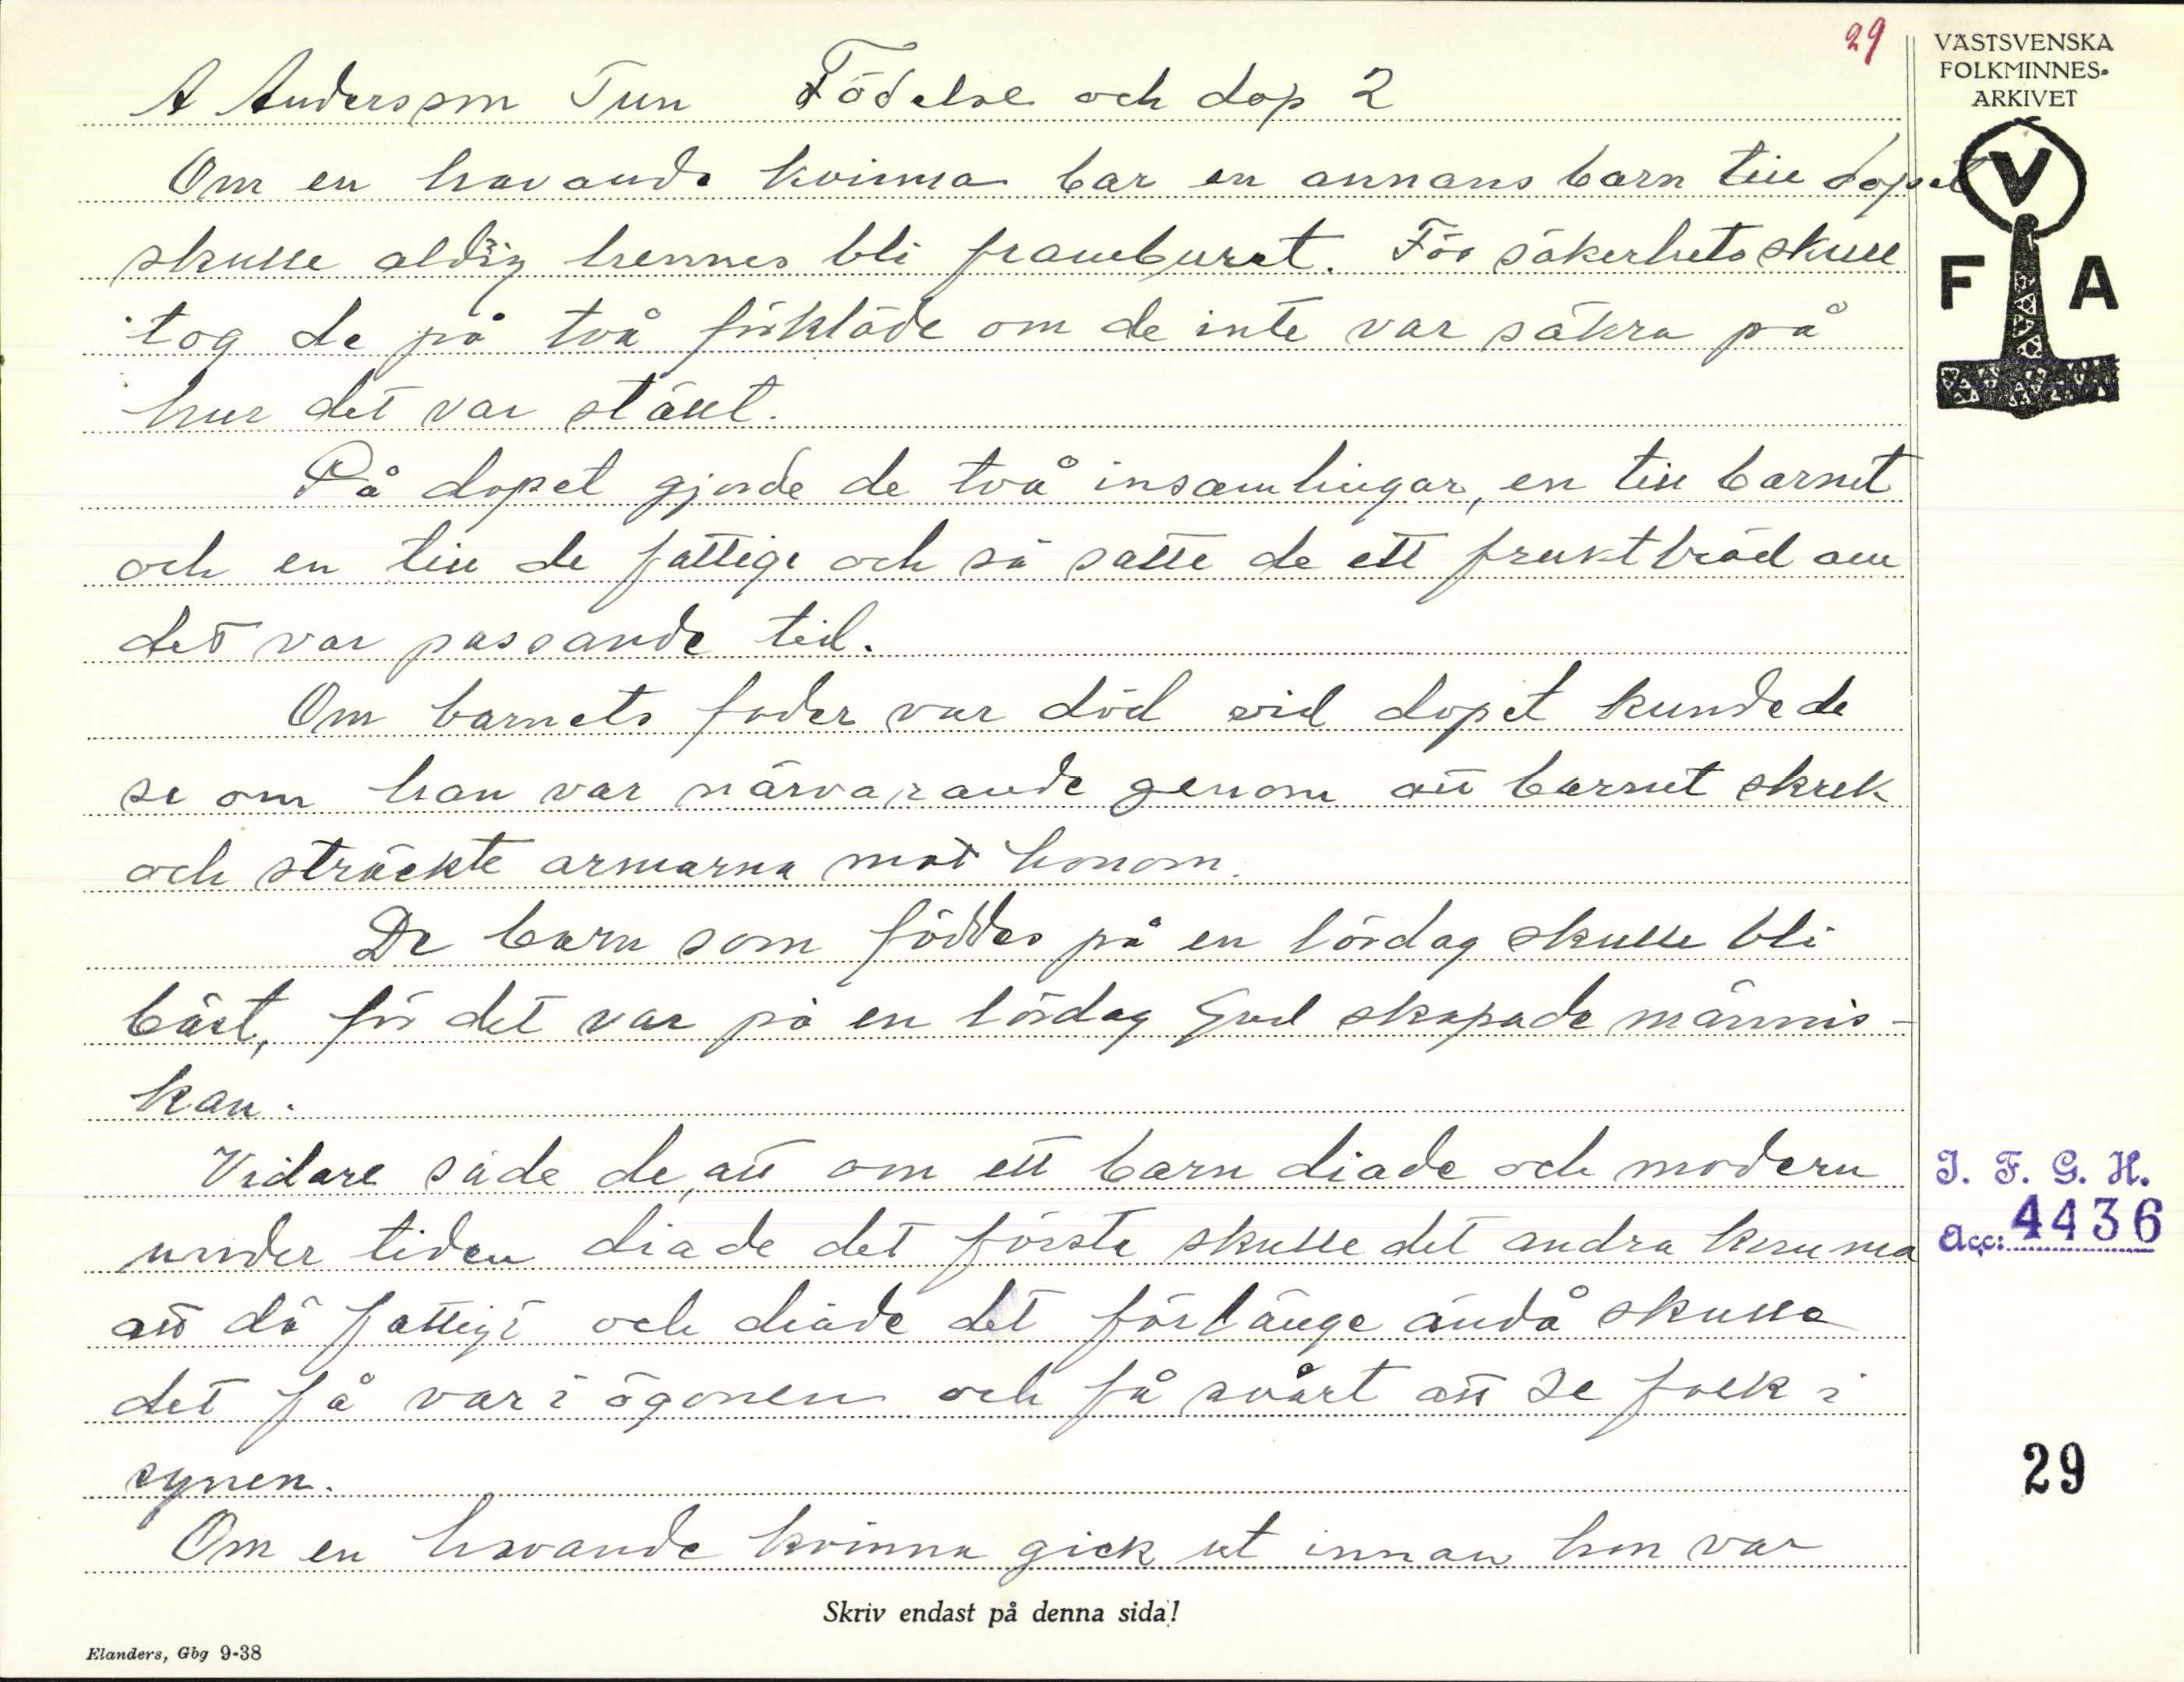 29
VÄSTSVENSKA
FOLKMINNES-
ARKIVET
V
F A
A Andersson Tun Födelse och dop 2
Om en havande kvinna bar en annans barn till dopet
skulle aldrig hennes bli framburet. För säkerhets skull
tog de på två förkläde om de inte var säkra på
hur det var ställt.
På dopet gjorde de två insamlingar, en till barnet
och en till de fattige och så satte de ett fruktträd om
det var passande tid.
Om barnets fader var död vid dopet kunde de
se om han var närvarande genom att barnet skrek
och sträckte armarna mot honom.
De barn som föddes på en lördag skulle bli
bäst, för det var på en lördag Gud skapade männis-
kan.
Vidare sade de, att om ett barn diade och modern
under tiden diade det första skulle det andra komma
att dö fattigt och diade det för länge ändå skulle
det få var i ögonen och få svårt att se folk i
synen.
Om en havande kvinna gick ut innan hon var
I. F. G. H.
Acc: 4436
29
Skriv endast på denna sida!
Elanders, Gbg 9-38